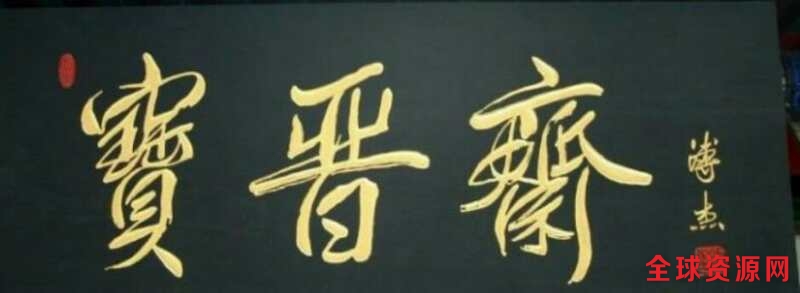 寶晋齋
溥杰
全球资源网